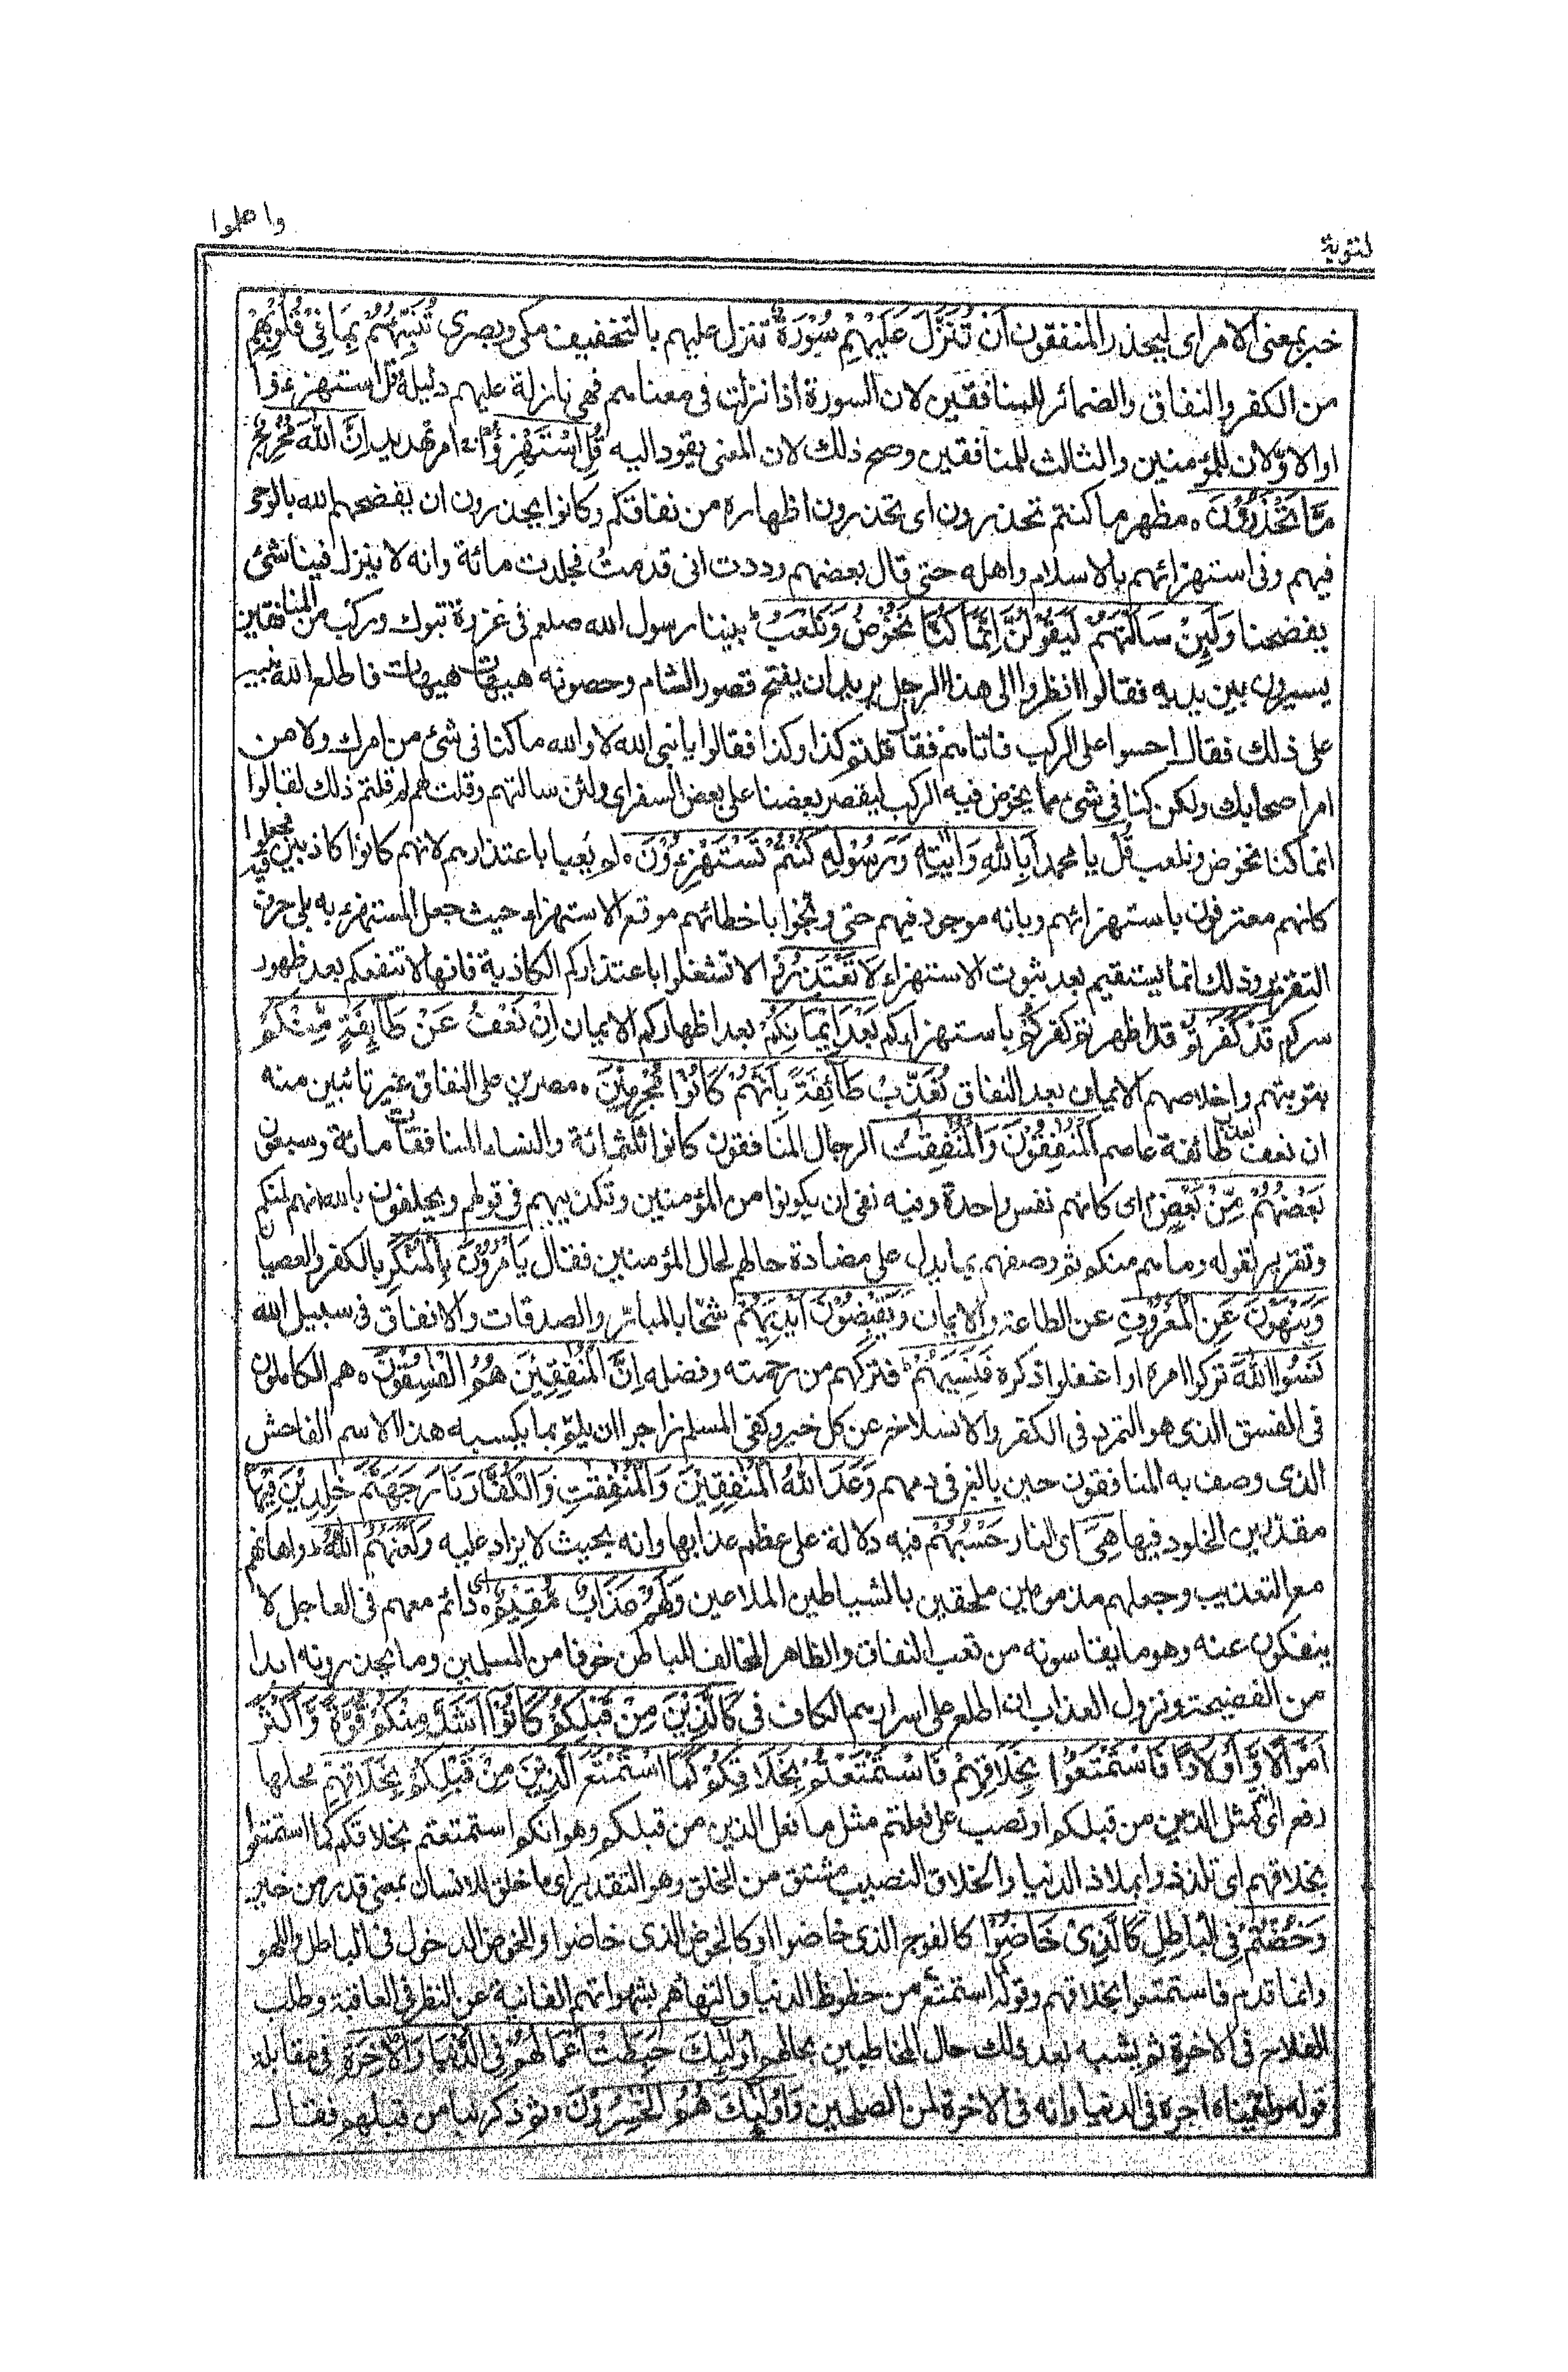 واعلموا
لتوبة
خبر بمعنى الامر اى ليحذر المنفقون اَنْ تُنَزَّلَ عَلَيْهِمْ سُوْرَةٌ تنزل عليهم بالتخفيف مكى وبصرى تُنَبِّئُهُمْ بِمَا فِىْ قُلُوْبِهِمْ
من الكفر والنفاق والضمائر للمنافقين لان السورة اذا نزلت فى معناهم فهى نازلة عليهم دليله قل استهزءوا
او الاوّلان للمؤمنين والثالث للمنافقين وصح ذلك لان المعنى يقود اليه قُلِ اسْتَهْزِءُوْا امر تهديد اِنَّ اللّٰهَ مُخْرِجٌ
مَّا تَحْذَرُوْنَ ه مظهر ما كنتم تحذرون اى تحذرون اظهاره من نفاقكم وكانوا يحذرون ان يفضحهم الله بالوحى
فيهم وفى استهزائهم بالاسلام واهله حتى قال بعضهم وددت انى قدمتُ فجلدت مائة وانه لا ينزل فينا شئ
يفضحنا وَلَئِنْ سَاَلْتَهُمْ لَيَقُوْلُنَّ اِنَّمَا كُنَّا نَخُوْضُ وَنَلْعَبُ بينا رسول الله صلعم فى غزوة تبوك وركب من المنافقين
يسيرون بين يديه فقالوا انظروا الى هذا الرجل يريد ان يفتح قصور الشام وحصونه هيهات هيهات فاطلع الله نبيه
على ذلك فقال احبسوا على الركب فاتاهم فقال قلتم كذا وكذا فقالوا يا نبى الله لا والله ما كنا فى شئ من امرك ولا من
امر اصحابك ولكن كنا فى شئ مما يخوض فيه الركب ليقصر بعضنا على بعض السفر اى ولئن سالتهم وقلت لهم لم قلتم ذلك لقالوا
انما كنا نخوض ونلعب قُلْ يا محمد اَبِاللّٰهِ وَاٰيٰتِهٖ وَرَسُوْلِهٖ كُنْتُمْ تَسْتَهْزِءُوْنَ ه لم يعبا باعتذارهم لانهم كانوا كاذبين فيه فجعلوا
كانهم معترفون باستهزائهم وبانه موجود فيهم حتى وبخوا باخطائهم موقع الاستهزاء حيث جعل المستهزء به يلى حرف
التقرير وذلك انما يستقيم بعد ثبوت الاستهزاء لَا تَعْتَذِرُوْا لا تشتغلوا باعتذاركم الكاذبة فانها لا تنفعكم بعد ظهور
سركم قَدْ كَفَرْتُمْ قد اظهرتم كفركم باستهزاءكم بَعْدَ اِيْمَانِكُمْ بعد اظهاركم الايمان اِنْ نَّعْفُ عَنْ طَآئِفَةٍ مِّنْكُمْ
بتوبتهم واخلاصهم الايمان بعد النفاق نُعَذِّبْ طَآئِفَةً بِاَنَّهُمْ كَانُوْا مُجْرِمِيْنَ ه مصرين على النفاق غير تائبين منه
ان نعف نعذب طائفة عاصم اَلْمُنٰفِقُوْنَ وَالْمُنٰفِقٰتُ الرجال المنافقون كانوا ثلثمائة والنساء المنافقات مائة وسبعون
بَعْضُهُمْ مِّنْ بَعْضٍ اى كانهم نفس واحدة وفيه نفى ان يكونوا من المؤمنين وتكذيبهم فى قولهم ويحلفون بالله انهم لمنكم
وتقرير لقوله وما هم منكم ثم وصفهم بما يدل على مضادة حالهم لحال المؤمنين فقال يَاْمُرُوْنَ بِالْمُنْكَرِ بالكفر والعصيان
وَيَنْهَوْنَ عَنِ الْمَعْرُوْفِ عن الطاعة والايمان وَيَقْبِضُوْنَ اَيْدِيَهُمْ شحّا بالمبارّ والصدقات والانفاق فى سبيل الله
نَسُوا اللّٰهَ تركوا امره او اغفلوا ذكره فَنَسِيَهُمْ فتركهم من رحمته وفضله اِنَّ الْمُنٰفِقِيْنَ هُمُ الْفٰسِقُوْنَ ه هم الكاملون
فى الفسق الذى هو التمرد فى الكفر والانسلاخ عن كل خير وكفى المسلم زاجرا ان يلم بما يكسبه هذا الاسم الفاحش
الذى وصف به المنافقون حين بالغ فى ذمهم وَعَدَ اللّٰهُ الْمُنٰفِقِيْنَ وَالْمُنٰفِقٰتِ وَالْكُفَّارَ نَارَ جَهَنَّمَ خٰلِدِيْنَ فِيْهَا
مقدّرين الخلود فيها هِىَ اى النار حَسْبُهُمْ فيه دلالة على عظم عذابها وانه بحيث لا يزاد عليه وَلَعَنَهُمُ اللّٰهُ واهانهم
مع التعذيب وجعلهم مذمومين ملحقين بالشياطين الملاعين وَلَهُمْ عَذَابٌ مُّقِيْمٌ ه اى دائم معهم فى العاجل لا
ينفكون عنه وهو ما يقاسونه من تعب النفاق والظاهر المخالف للباطن خوفا من المسلمين وما يحذرونه ابدا
من الفضيحة ونزول العذاب ان اطلع على اسرارهم الكاف فى كَالَّذِيْنَ مِنْ قَبْلِكُمْ كَانُوْٓا اَشَدَّ مِنْكُمْ قُوَّةً وَّاَكْثَرَ
اَمْوَالًا وَّاَوْلَادًا فَاسْتَمْتَعُوْا بِخَلَاقِهِمْ فَاسْتَمْتَعْتُمْ بِخَلَاقِكُمْ كَمَا اسْتَمْتَعَ الَّذِيْنَ مِنْ قَبْلِكُمْ بِخَلَاقِهِمْ محلها
رفع اى انتم مثل الذين من قبلكم او نصب على فعلتم مثل ما فعل الذين من قبلكم وهو انكم استمتعتم بخلاقكم كما استمتعوا
بخلاقهم اى تلذذوا بملاذ الدنيا والخلاق النصيب مشتق من الخلق وهو التقدير اى ما خلق للانسان بمعنى قدر من خير
وَخُضْتُمْ فى الباطل كَالَّذِىْ خَاضُوْا كالفوج الذى خاضوا او كالخوض الذى خاضوا والخوض الدخول فى الباطل واللهو
وانما قدم فاستمتعوا بخلاقهم وقوله كما استمتع من حظوظ الدنيا والتهائهم بشهواتهم الفانية عن النظر فى العاقبة وطلب
الفلاح فى الاخرة ثم يشبه بعد ذلك حال المخاطبين بحالهم اُولٰٓئِكَ حَبِطَتْ اَعْمَالُهُمْ فِى الدُّنْيَا وَالْاٰخِرَةِ فى مقابلة
قوله واتيناه اجره فى الدنيا وانه فى الاخرة لمن الصلحين وَاُولٰٓئِكَ هُمُ الْخٰسِرُوْنَ ه ثم ذكر نبا من قبلهم فقال